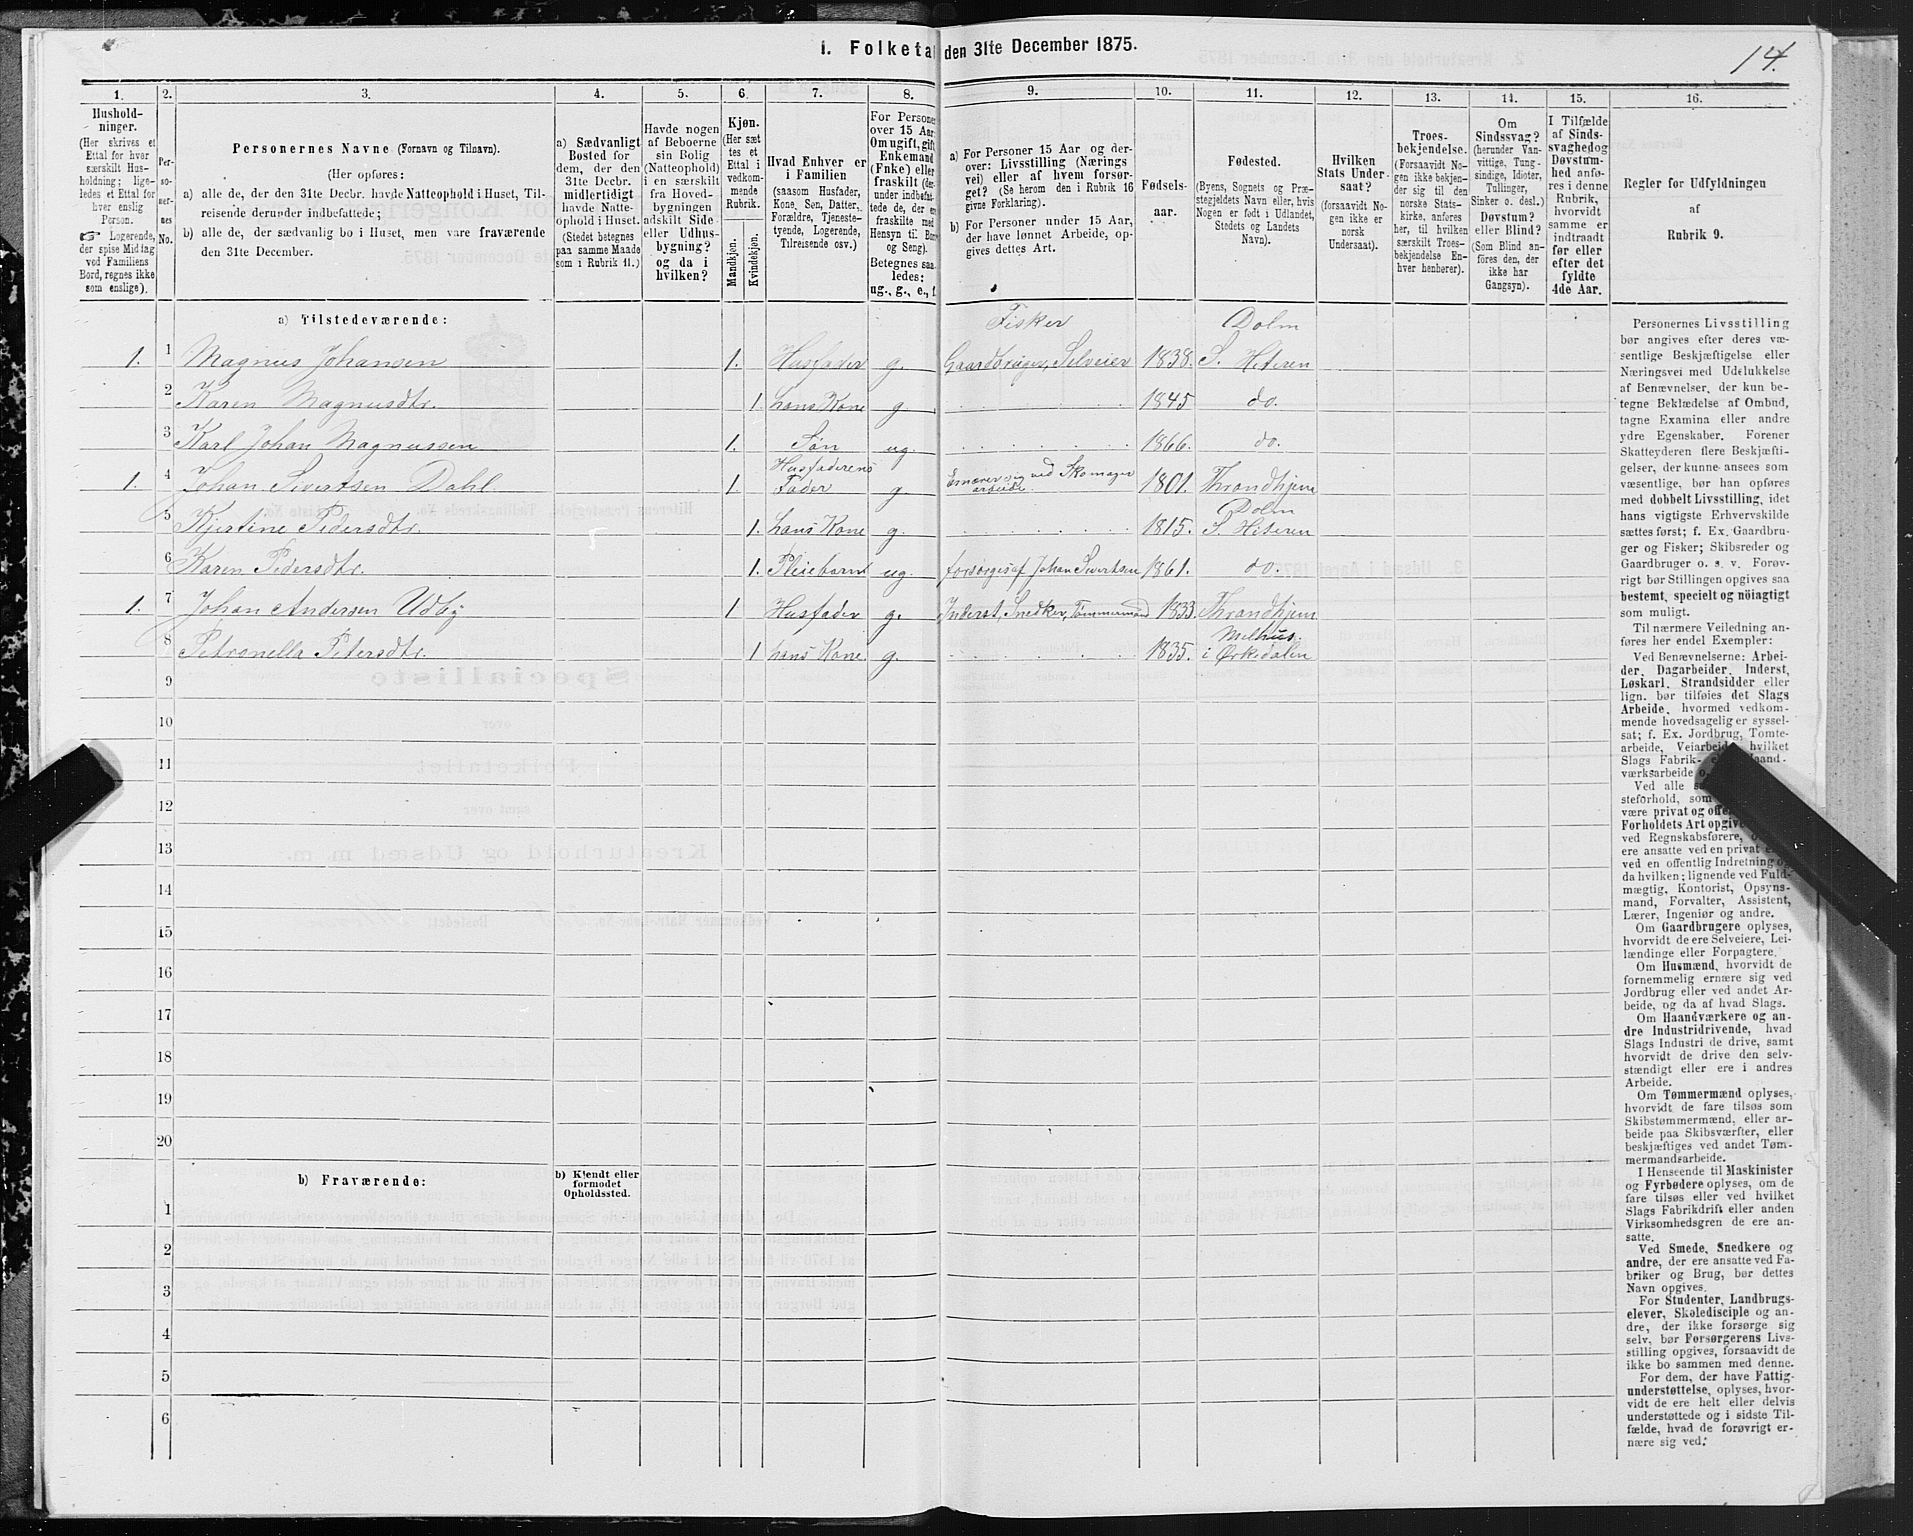 1. Folketal den 31te December 1875.
14.
1. 2. 3. 4. 5. 6. 7. 8. 9. 10. 11. 12. 13. 14. 15. 16.
Hushold-
ninger.
(Her skrives et
Ettal for hver
særskilt Hus-
holdning; lige-
ledes et Ettal for
hver enslig
Person.
Logerende,
der spise Middag
ved Familiens
Bord, regnes ikke
som enslige).
Per-
so-
ner-
nes
No.
Personernes Navne (Fornavn og Tilnavn).
(Her opføres:
a) alle de, der den 31te Decbr. havde Natteophold i Huset, Til-
reisende derunder indbefattede;
b) alle de, der sædvanlig bo i Huset, men vare fraværende
den 31te December.
a) Sædvanligt
Bosted for
dem, der den
31te Decbr.
midlertidigt
havde Natte-
ophold i Huset.
(Stedet betegnes
paa samme Maade
som i Rubrik 11.)
Havde nogen
af Beboerne
sin Bolig
(Natteophold)
i en særskilt
fra Hoved-
bygningen
adskilt Side-
eller Udhus-
bygning?
og da i
hvilken?
Kjøn.
(Her sæt-
tes et
Ettal i
vedkom-
mende
Rubrik.
Mandkjøn.
Kvindekjøn.
Hvad Enhver er
i Familien
(saasom Husfader,
Kone, Søn, Datter,
Forældre, Tjeneste-
tyende, Logerende,
Tilreisende osv.)
For Personer
over 15 Aar:
Om ugift, gift,
Enkemand
(Enke) eller
fraskilt (der-
under indbefat-
tede de, der ere
fraskilte med
Hensyn til Bord
og Seng).
Betegnes saa-
ledes:
ug., g., e., f.
a) For Personer 15 Aar og der-
over: Livsstilling (Nærings
vei) eller af hvem forsør-
get? (Se herom den i Rubrik 16
givne Forklaring).
b) For Personer under 15 Aar,
der have lønnet Arbeide, op-
gives dettes Art.
Fødsels-
aar.
Fødested.
(Byens, Sognets og Præ-
stegjeldets Navn eller, hvis
Nogen er født i Udlandet,
Stedets og Landets
Navn).
Hvilken
Stats Under-
saat?
(forsaavidt No-
gen ikke er
norsk
Undersaat).
Troes-
bekjendelse.
(Forsaavidt No-
gen ikke bekjen-
der sig til den
norske Stats-
kirke, anføres
her, til hvilken
særskilt Troes-
bekjendelse En-
hver henhører).
Om
Sindssvag?
(herunder Van-
vittige, Tung-
sindige, Idioter,
Tullinger,
Sinker o. desl.)
Døvstum?
eller Blind?
(Som Blind an-
føres den, der
ikke har
Gangsyn).
I Tilfælde
af Sinds-
svaghed og
Døvstum-
hed anfø-
res i denne
Rubrik,
hvorvidt
samme er
indtraadt
før eller
efter det
fyldte
4de Aar.
Regler for Udfyldningen
af
Rubrik 9.
a) Tilstedeværende:
Fisker Dolm
1. 1 Magnus Johansen 1. Husfader g. Gaardbruger, Selveier 1838. S. Hiteren
2 Karen Magnusdtr. 1. hans Kone g. 1845 do.
3 Karl Johan Magnussen 1. Søn ug. 1866. do.
1. 4 Johan Sivertsen Dahl 1. Husfaderens Fader g. Ernærer sig ved Skomager arbeide. 1801. Throndhjem
Dolm
5 Kjertine Pedersdtr. 1. hans Kone g. 1815. S. Hiteren
6 Karen Pedersdtr. 1. Pleiebarn ug. forsørges af Johan Sivertsen 1861. do.
1. 7 Johan Andersen Udby 1 Husfader g. Inderst, Snedker, Tømmermand 1833. Throndhjem
Melhus.
8 Petronella Petersdtr. 1 hans Kone g. 1835. i Ørkedalen
9
10
11
12
13
14
15
16
17
18
19
20
b) Fraværende:
b) Kjendt eller
formodet
Opholdssted.
1
2
3
4
5
6
Personernes Livsstilling
bør angives efter deres væ-
sentlige Beskjæftigelse eller
Næringsvei med Udelukkelse
af Benævnelser, der kun be-
tegne Beklædelse af Ombud,
tagne Examina eller andre
ydre Egenskaber. Forener
Skatteyderen flere Beskjæfti-
gelser, der kunne ansees som
væsentlige, bør han opføres
med dobbelt Livsstilling, idet
hans vigtigste Erhvervskilde
sættes først; f. Ex. Gaardbru-
ger og Fisker; Skibsreder og
Gaardbruger o. s. v. Forøv-
rigt bør Stillingen opgives saa
bestemt, specielt og nöiagtigt
som muligt.
Til nærmere Veiledning an-
føres her endel Exempler:
Ved Benævnelserne: Arbei-
der, Dagarbeider, Inderst,
Løskarl, Strandsidder eller
lign. bør tilføies det Slags
Arbeide, hvormed vedkom-
mende hovedsagelig er syssel-
sat; f. Ex. Jordbrug, Tomte-
arbeide, Veiarbeide, hvilket
Slags Fabrik- Haand-
værksarbeide
Ved alle
steforhold, som
være privat og
Forholdets Art opgives
ved Regnskabsførere,
ere ansatte ved en privat
ved en offentlig Indretning og
da hvilken; lignende ved Fuld-
mægtig, Kontorist, Opsyns-
mand, Forvalter, Assistent,
Lærer, Ingeniør og andre.
Om Gaardbrugere oplyses,
hvorvidt de ere Selveiere, Lei-
lændinge eller Forpagtere.
Om Husmænd, hvorvidt de
fornemmelig ernære sig ved
Jordbrug eller ved andet Ar-
beide, og da af hvad Slags.
Om Haandværkere og an-
dre Industridrivende, hvad
Slags Industri de drive, samt
hvorvidt de drive den selv-
stændigt eller ere i andres
Arbeide.
Om Tømmermænd oplyses,
hvorvidt de fare tilsøs som
Skibstømmermænd, eller ar-
beide paa Skibsværfter, eller
beskjæftiges ved andet Tøm-
mermandsarbeide.
I Henseende til Maskinister
og Fyrbødere oplyses, om de
fare tilsøs eller ved hvilket
Slags Fabrikdrift eller anden
Virksomhedsgren de ere an-
satte.
Ved Smede, Snedkere og
andre, der ere ansatte ved Fa-
briker og Brug, bør dettes
Navn opgives.
For Studenter, Landbrugs-
elever, Skoledisciple og an-
dre, der ikke forsørge sig
selv, bør Forsørgerens Livs-
stilling opgives, forsaavidt de
ikke bo sammen med denne.
For dem, der have Fattig-
understøttelse, oplyses, hvor-
vidt de ere helt eller delvis
understøttede og i sidste Til-
fælde, hvad de forøvrigt er-
nære sig ved.